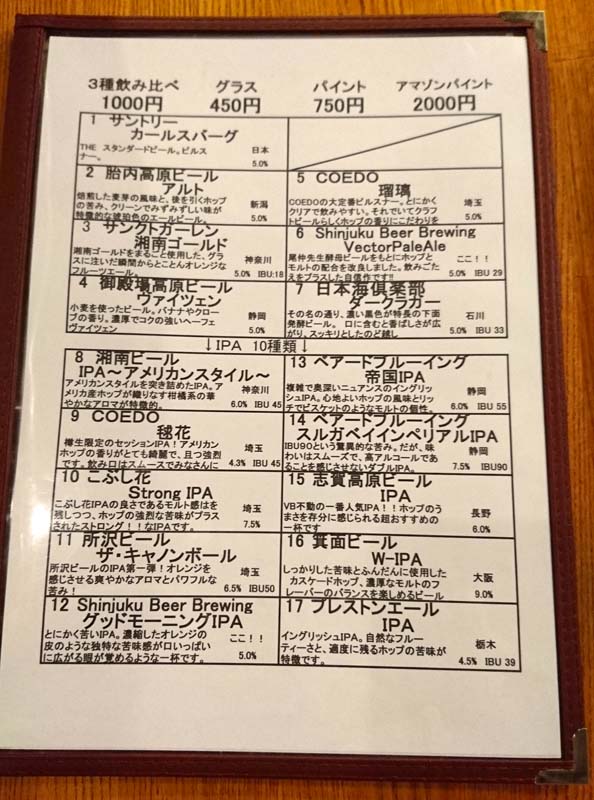 3種飲み比べ グラス パイント アマゾンパイント
1000円 450円 750円 2000円
1 サントリー
カールスバーグ
THE スタンダードビール。ピルス
ナー。
日本
5.0%
2 胎内高原ビール
アルト
焙煎した麦芽の風味と、後を引くホップ
の苦み、クリーンでみずみずしい味が
特徴的な琥珀色のエールビール。
新潟
5.0%
3 サンクトガーレン
湘南ゴールド
湘南ゴールドをまるごと使用した、グラ
スに注いだ瞬間からとことんオレンジな
フルーツエール。
神奈川
5.0% IBU:18
4 御殿場高原ビール
ヴァイツェン
小麦を使ったビール。バナナやクロー
ブの香り。濃厚でコクの強いヘーフェ
ヴァイツェン
静岡
5.0%
5 COEDO
瑠璃
COEDOの大定番ピルスナー。とにかく
クリアで飲みやすい。それでいてクラフ
トビールらしくホップの香りにこだわりを
埼玉
5.0%
6 Shinjuku Beer Brewing
VectorPaleAle
尾仲先生酵母ビールをもとにホップと
モルトの配合を改良しました。飲みごた
えをプラスした自信作です!!
ここ!!
5.0% IBU 29
7 日本海倶楽部
ダークラガー
その名の通り、濃い黒色が特長の下面
発酵ビール。 口に含むと香ばしさが広
がり、スッキリとしたのど越し
石川
5.0% IBU 33
↓IPA 10種類↓
8 湘南ビール
IPA～アメリカンスタイル～
アメリカンスタイルを突き詰めたIPA。ア
メリカ産ホップが織りなす柑橘系の華
やかなアロマが特徴的。
神奈川
6.0% IBU 45
9 COEDO
毬花
樽生限定のセッションIPA!アメリカン
ホップの香りがとても綺麗で、且つ強烈
です。飲み口はスムースでみなさんに
埼玉
4.3% IBU 45
10 こぶし花
Strong IPA
こぶし花IPAの良さであるモルト感はを
残しつつ、ホップの強烈な苦味がプラス
されたストロング!!なIPAです。
埼玉
7.5%
11 所沢ビール
ザ・キャノンボール
所沢ビールのIPA第一弾!オレンジを
感じさせる爽やかなアロマとパワフルな
苦み!
埼玉
6.5% IBU50
12 Shinjuku Beer Brewing
グッドモーニングIPA
とにかく苦いIPA。濃縮したオレンジの
皮のような独特な苦味感が口いっぱい
に広がる眼が覚めるような一杯です。
ここ!!
5.0%
13 ベアードブルーイング
帝国IPA
複雑で奥深いニュアンスのイングリッ
シュIPA。心地よいホップの風味とリッ
チでビスケットのようなモルトの個性。
静岡
6.0% IBU 55
14 ベアードブルーイング
スルガベイインペリアルIPA
IBU90という驚異的な苦み。だが、味
わいはスムーズで、高アルコールであ
ることを感じさせないダブルIPA。
静岡
7.5% IBU90
15 志賀高原ビール
IPA
VB不動の一番人気IPA!!ホップのう
まさを存分に感じられる超おすすめの
一杯です
長野
6.0%
16 箕面ビール
W-IPA
しっかりした苦味とふんだんに使用した
カスケードホップ、濃厚なモルトのフ
レーバーのバランスを楽しめるビール
大阪
9.0%
17 プレストンエール
IPA
イングリッシュIPA。自然なフルー
ティーさと、適度に残るホップの苦味が
特徴です。
栃木
4.5% IBU 39